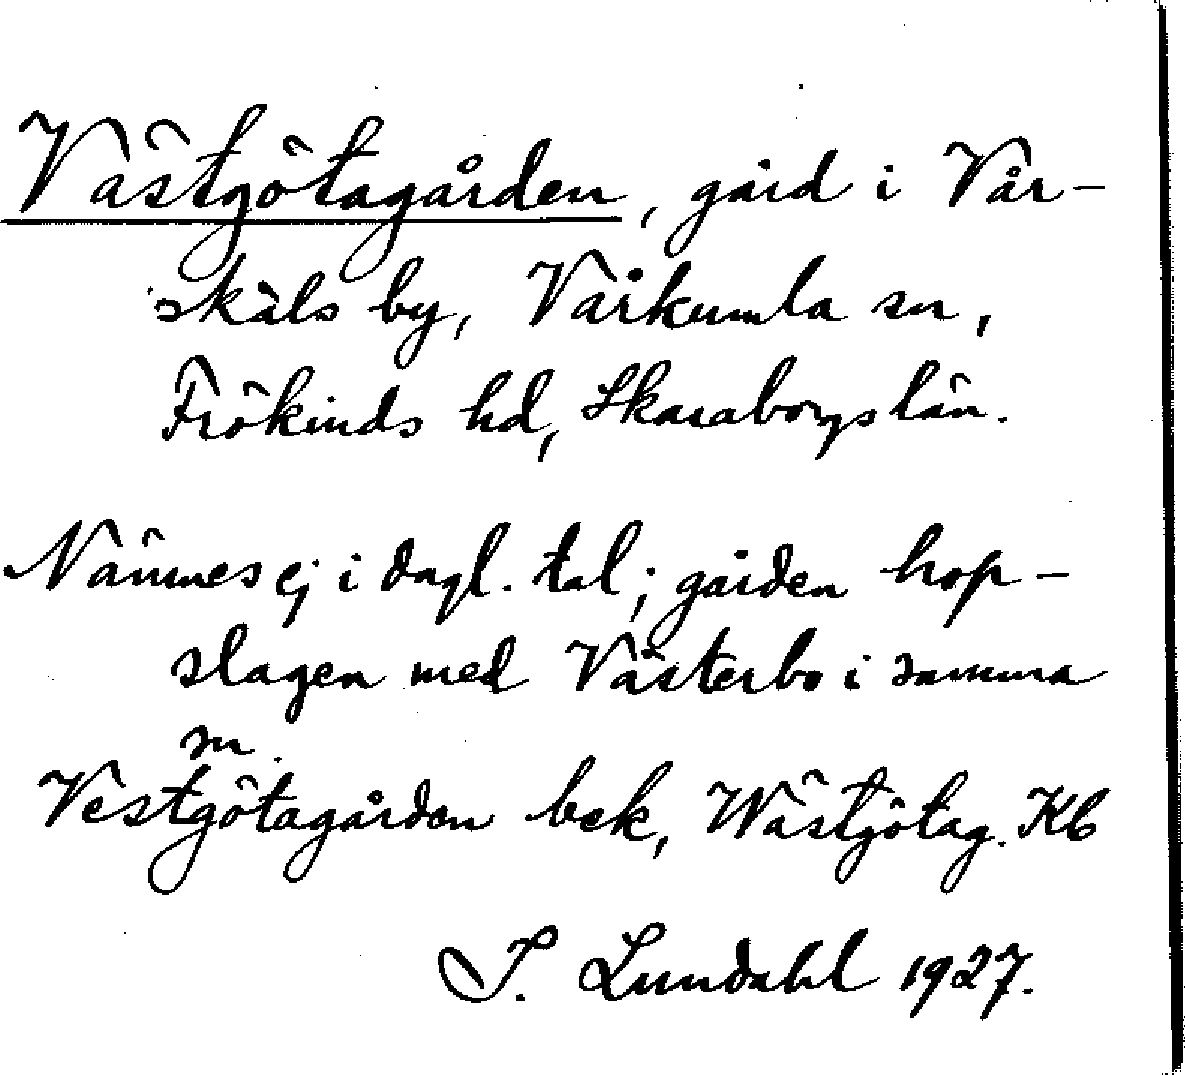 Västgötagården, gård i Vår-
skäls by, Vårkumla sn,
Frökinds hd, Skaraborgs län.
Nämnes ej i dagl. tal; gården hop-
slagen med Västerbo i samma
sn.
Vestgötagården bek, Wästgötag. Kb
I. Lundahl 1927.